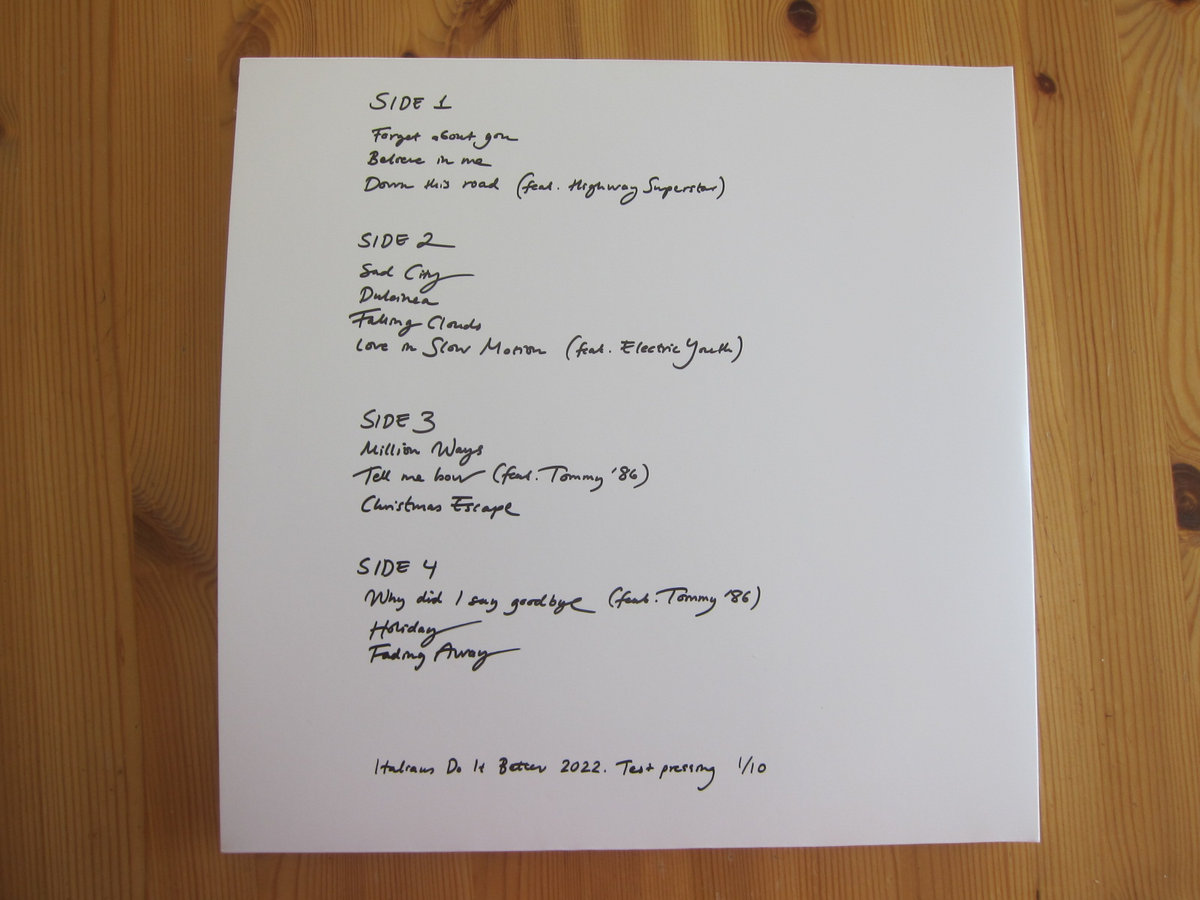 SIDE 1
Forget about you
Believe in me
Down this road (feat. Highway Superstar)
SIDE 2
Sad City
Dulcinea
Falling Clouds
Love in Slow Motion (feat. Electric Youth)
SIDE 3
Million Ways
Tell me how (feat. Tommy '86)
Christmas Escape
SIDE 4
Why did I say goodbye (feat. Tommy '86)
Holiday
Fading Away
Italians Do It Better 2022. Test pressing 1/10